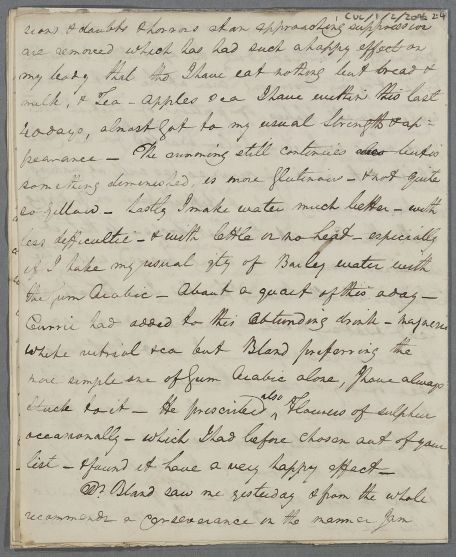 CUL/1/2/206 2/4
rions & doubts & horrors at an approaching suppression
are removed which has had such a happy effect on
my body that tho I have eat nothing but bread &
milk, & Tea - Apples &ca I have within this last
40 days, almost got to my usual Strength & ap-
pearance - The running still continues but is
something diminished, is more glutinous - & not quite
so yellow - lastly I make water much better - with
less difficultie - & with little or no heat - especially
if I take my usual qty of Barley water with
the Gum Arabic - About a quart of this a day -
Currie had added to this obtunding drink - magnesia
White vitriol &ca but Bland preferring the
more simple one of Gum Arabic alone, I have always
stuck to it - He prescribed also Flowers of sulphur
occasionally - which I had before chosen out of your
list - & found it have a very happy effect -
Dr. Bland saw me yesterday & from the whole
recommends a perseverance in the manner I am